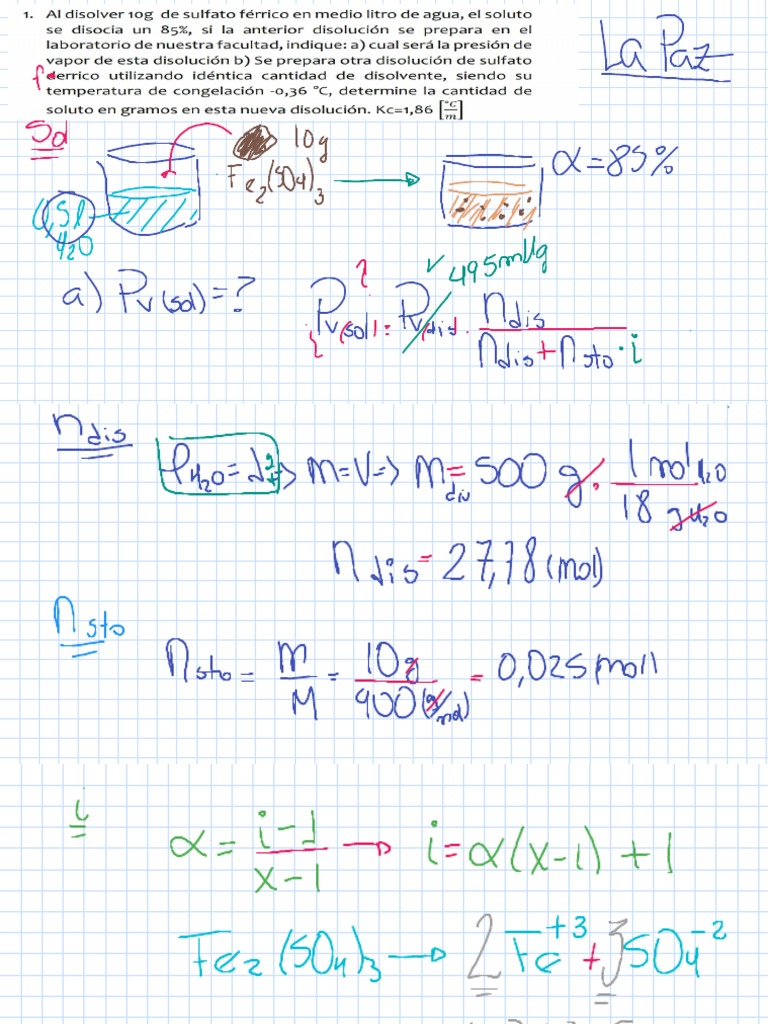 1. Al disolver 10g de sulfato férrico en medio litro de agua, el soluto
se disocia un 85%, si la anterior disolución se prepara en el
laboratorio de nuestra facultad, indique: a) cual será la presión de
vapor de esta disolución b) Se prepara otra disolución de sulfato
ferrico utilizando idéntica cantidad de disolvente, siendo su
temperatura de congelación -0,36 °C, determine la cantidad de
soluto en gramos en esta nueva disolución. Kc=1,86 [°C/m]
La Paz
Sol
10g
Fe2(SO4)3
α=85%
0,5l
H2O
a) Pv(sol)=?
Pv(sol) = Pv(dis) · ndis / (ndis + nsto · i)
?
✓ 495mmHg
ndis
ρH2O=1 => m=V=> m dis = 500 g · 1 mol H2O / 18 g H2O
ndis = 27,78 (mol)
nsto
nsto = m/M = 10g / 400(g/mol) = 0,025(mol)
i
α = i-1 / x-1 → i = α(x-1) + 1
Fe2(SO4)3 → 2Fe+3 + 3SO4-2